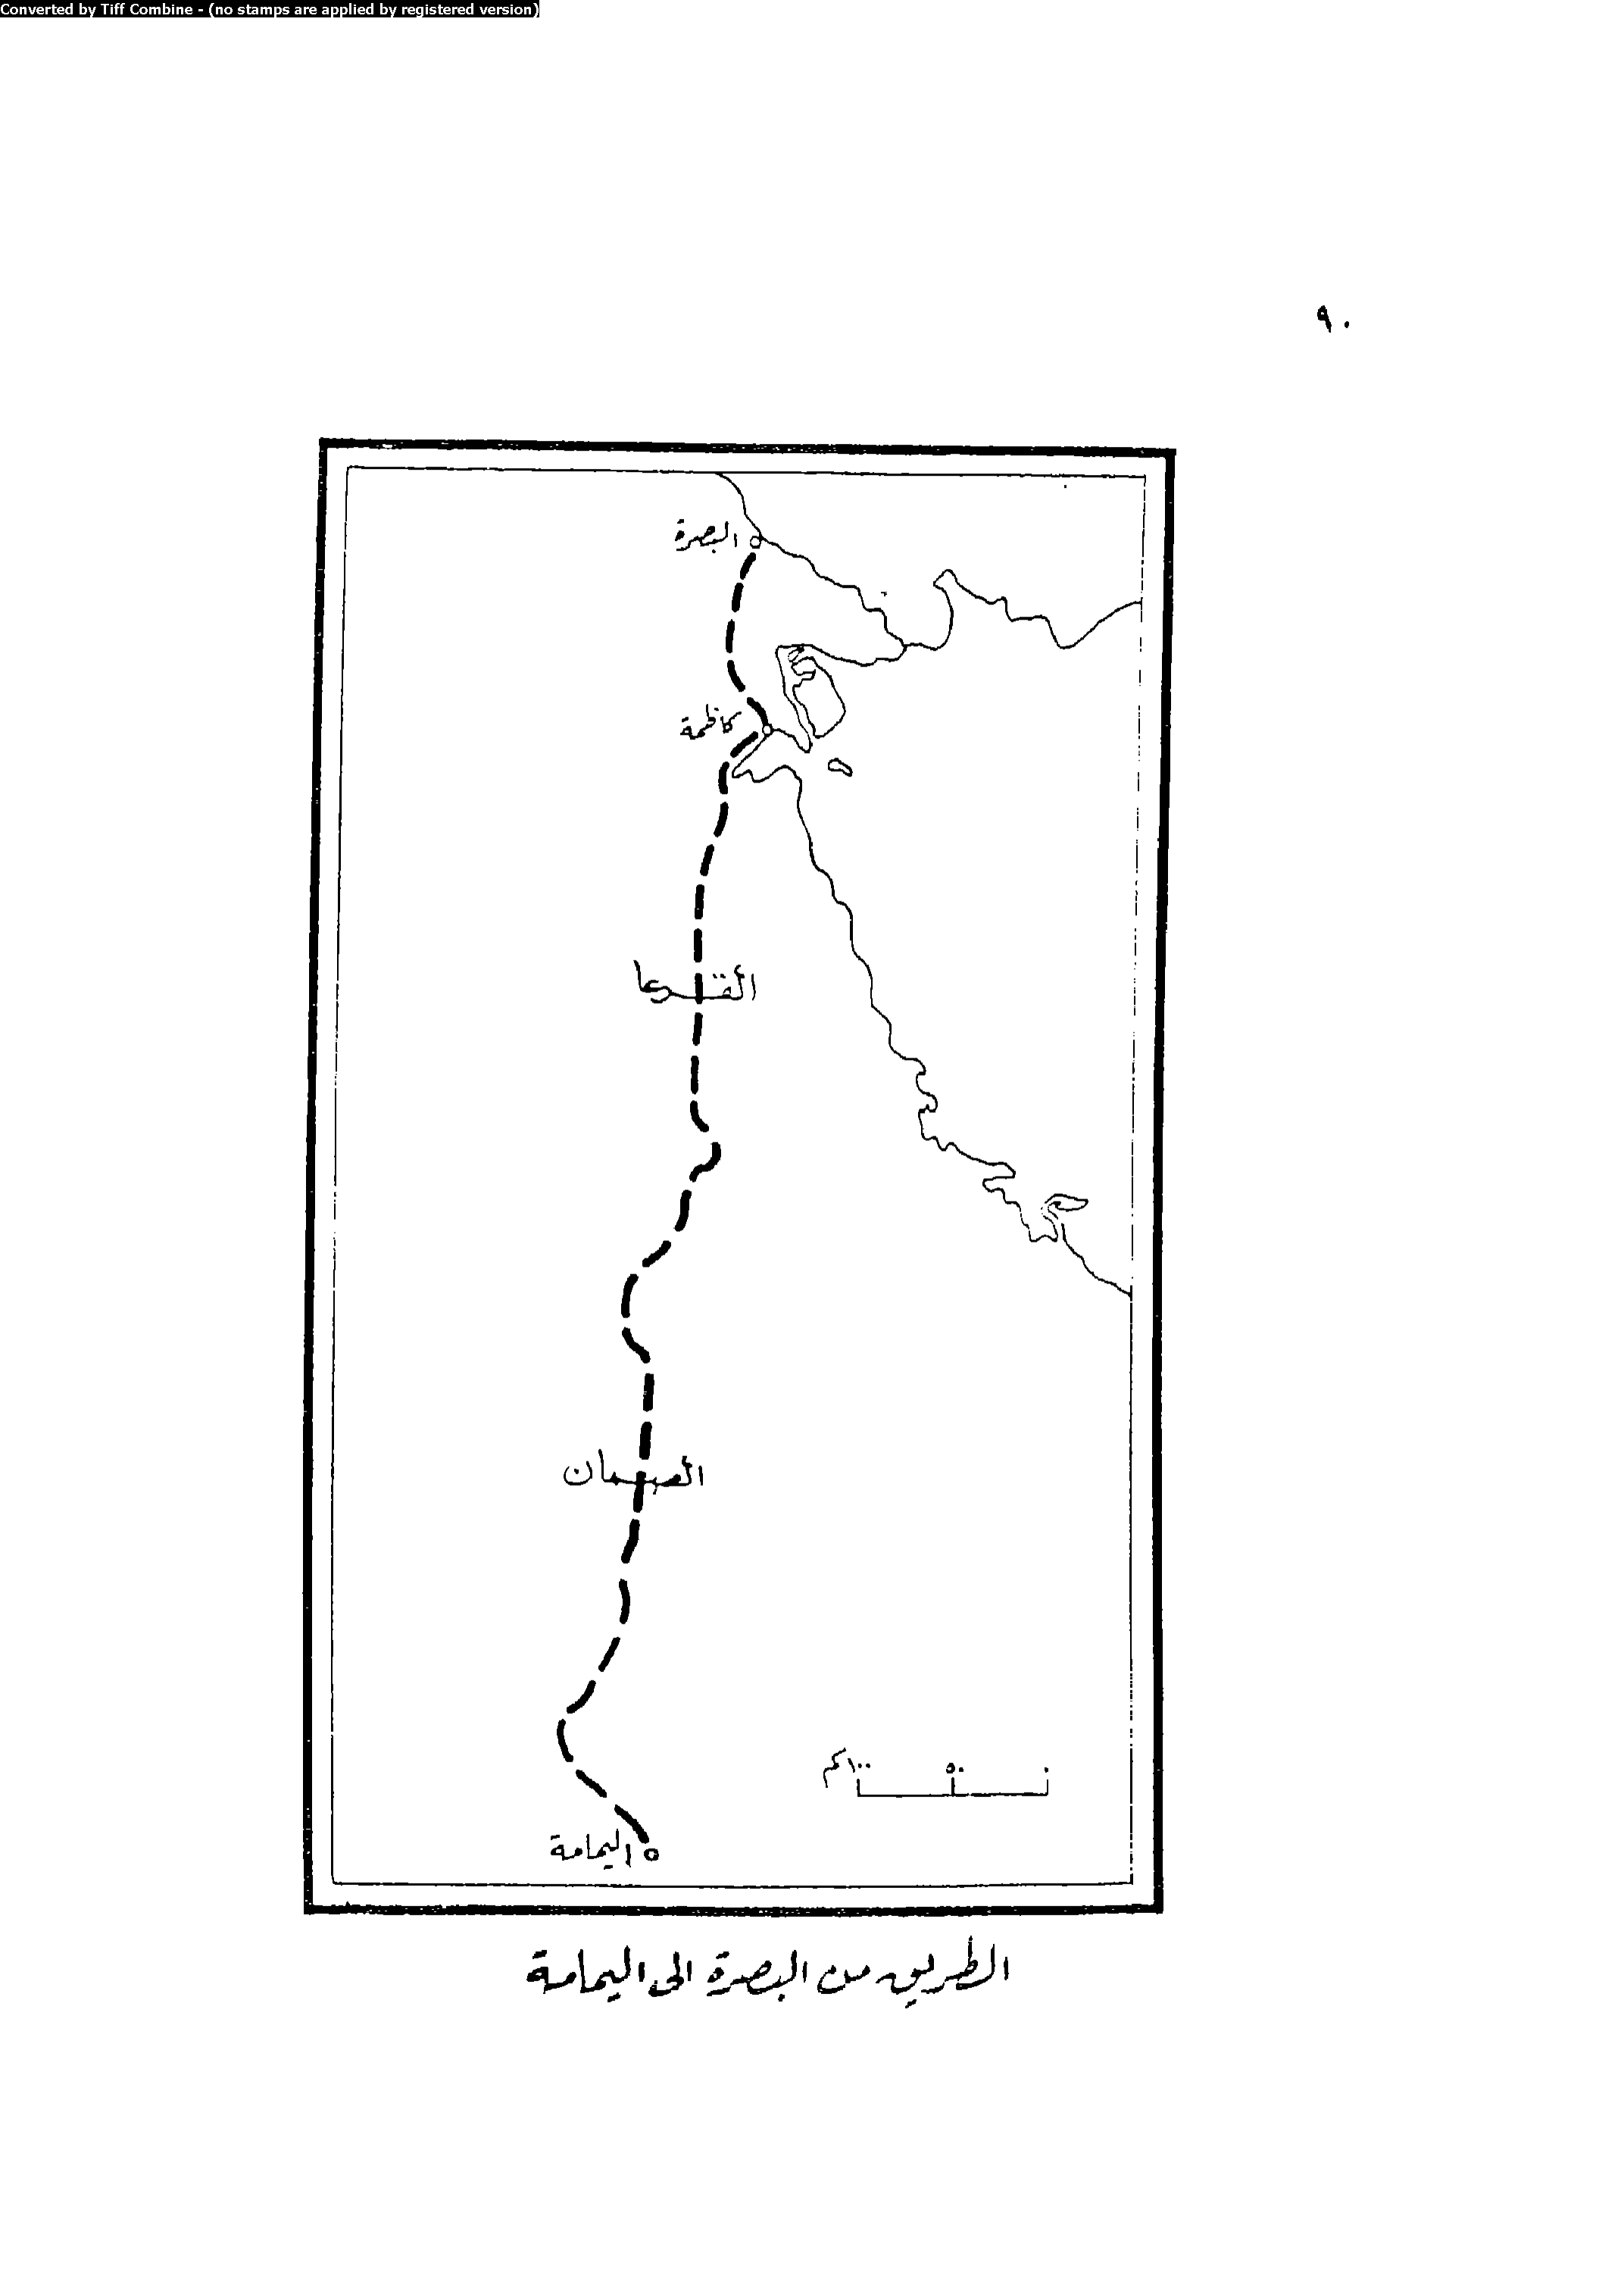 Converted by Tiff Combine - (no stamps are applied by registered version)
٩٠
البصرة
كاظمة
القرعا
الصمان
٠ ٥٠ ١٠٠كم
اليمامة
الطريق من البصرة الى اليمامة